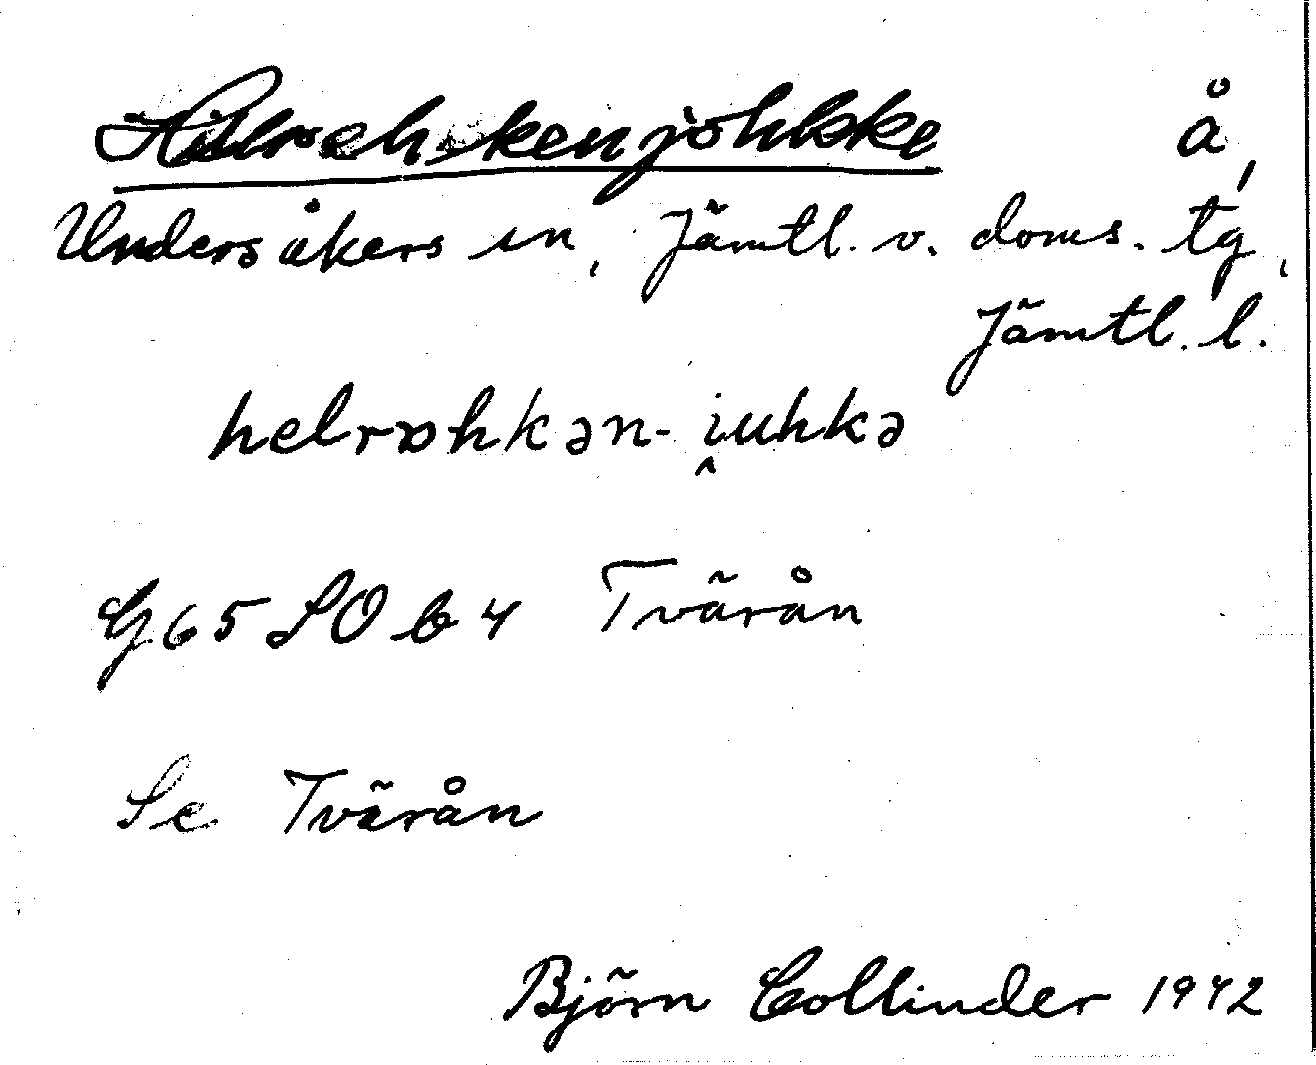 å,
Undersåkers sn, Jämtl. v. doms. tg,
Jämtl. l.
helrɒhkən-i̯uhkə
G 65 SO b 4 Tvärån
Se Tvärån
Björn Collinder 1942